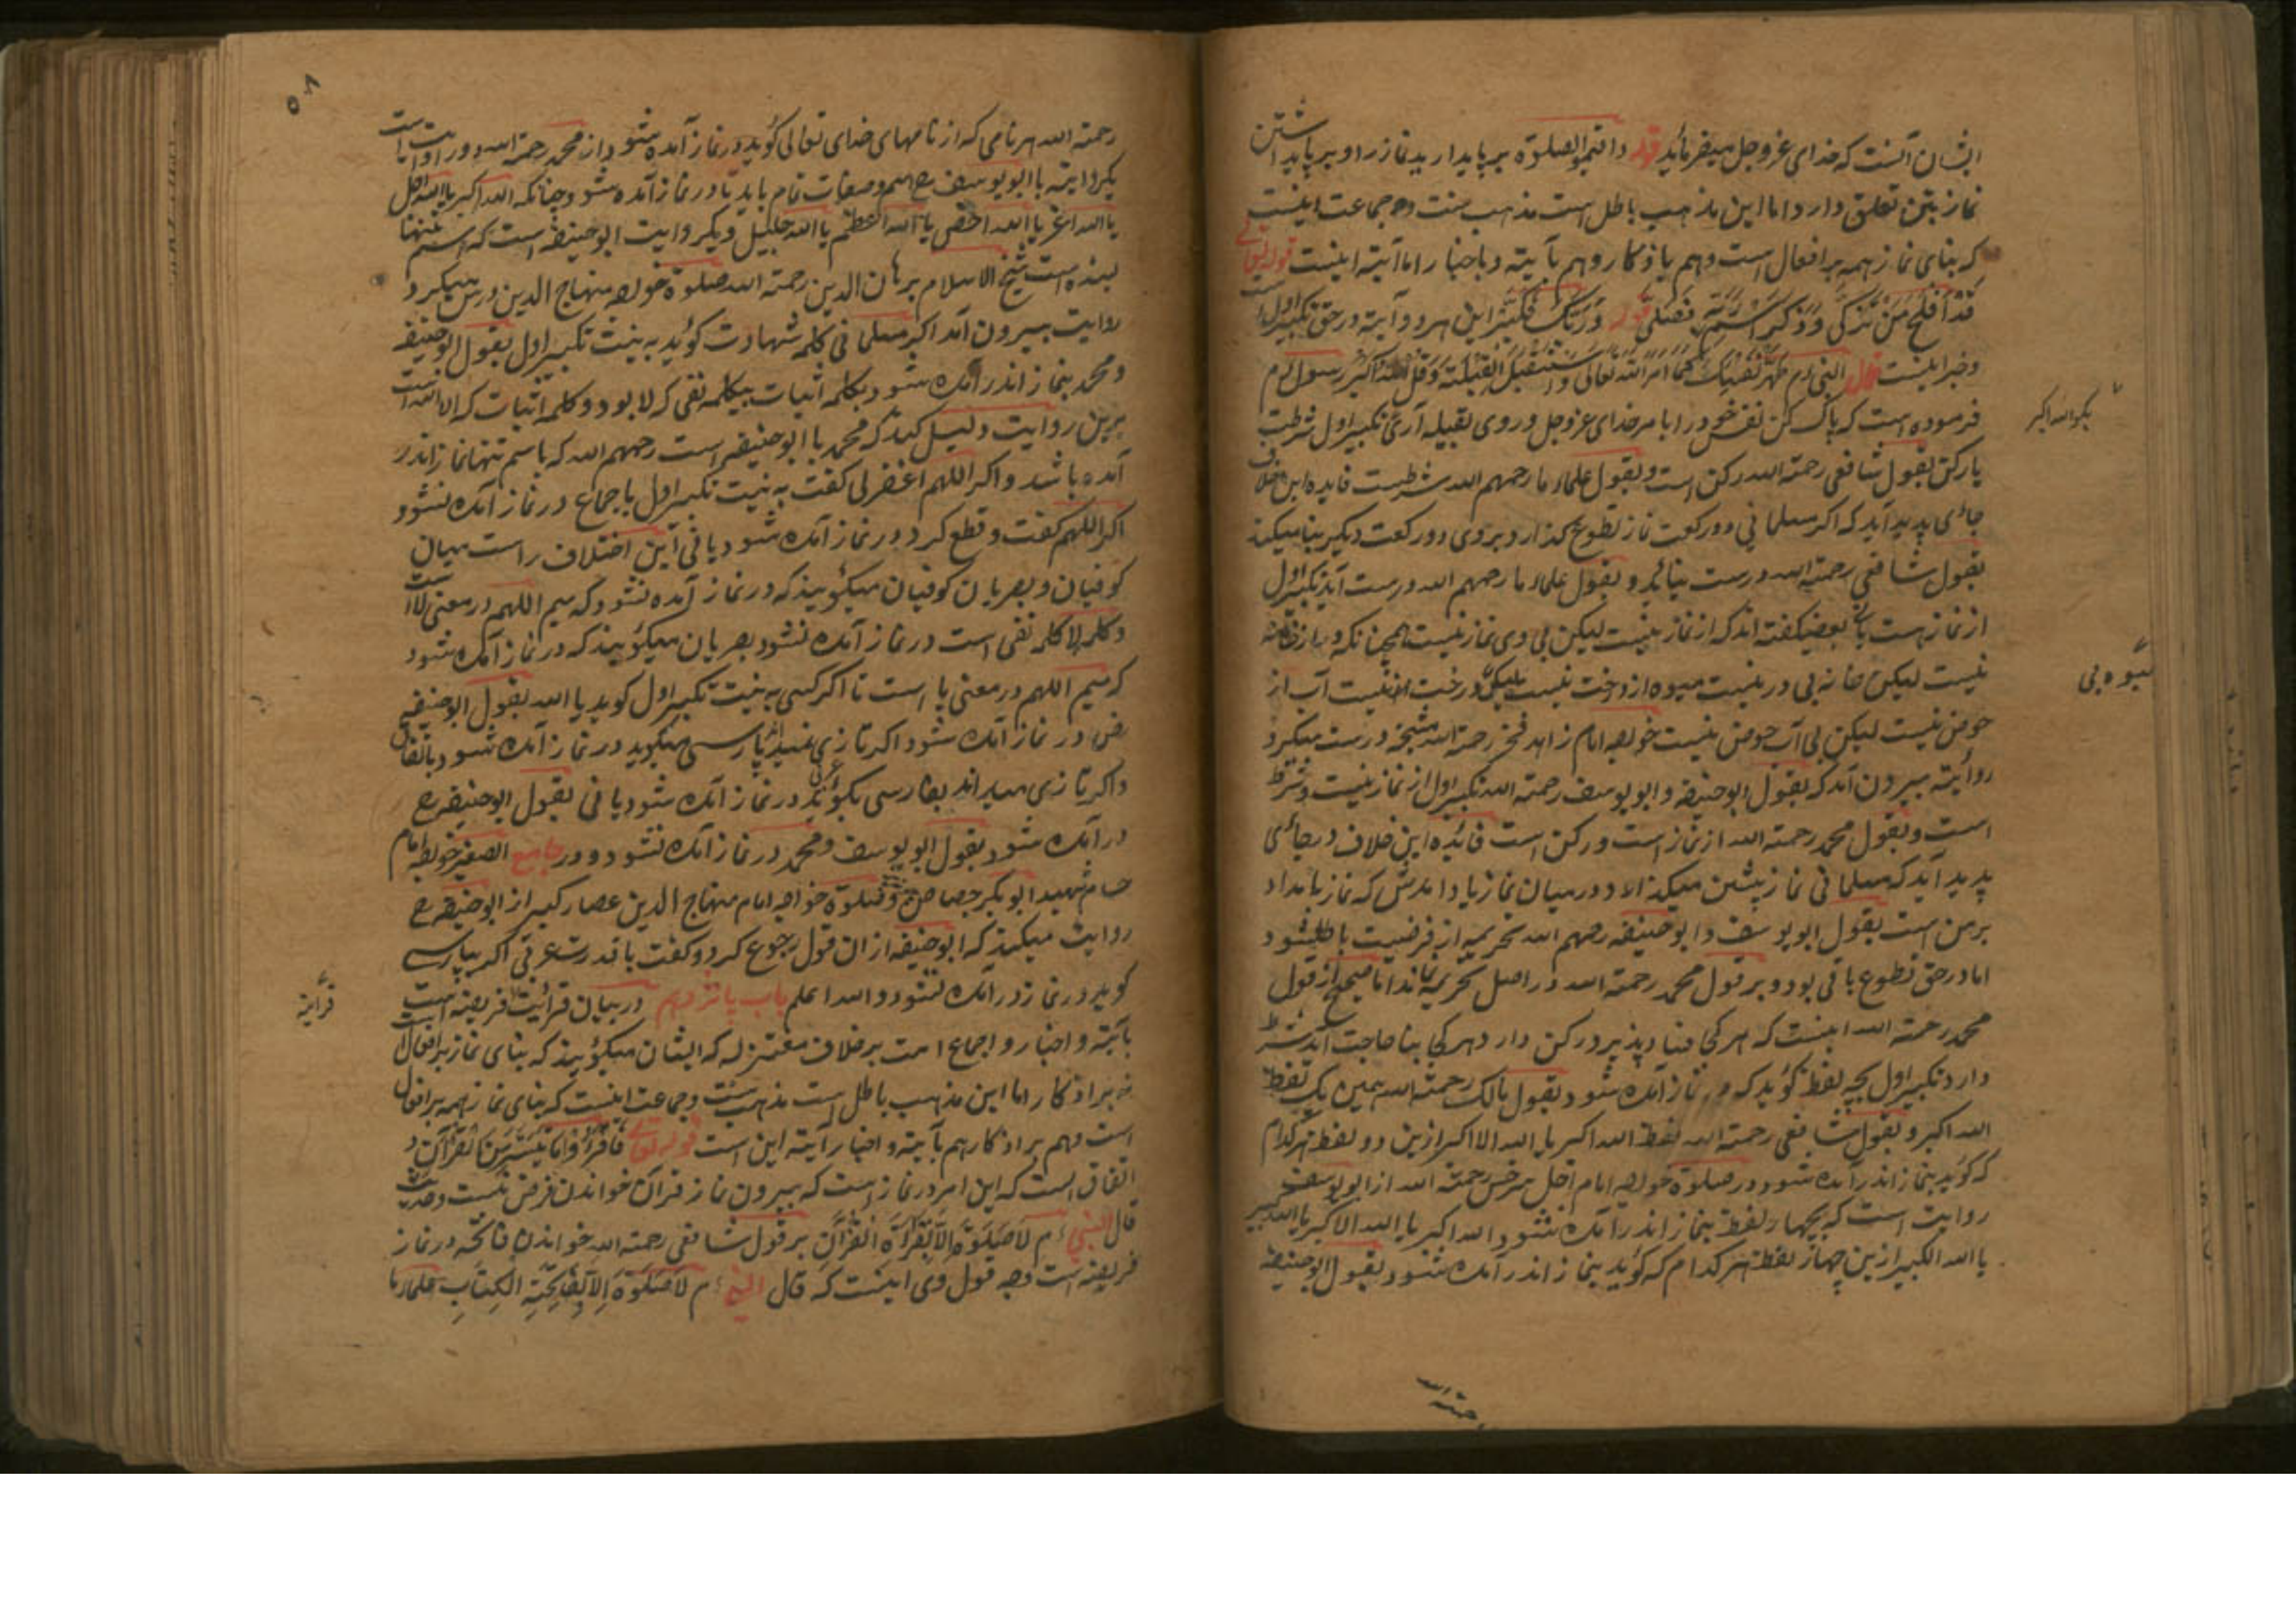 ایشان آنست که خدای عزوجل میفرماید قوله واقیموا الصلوة بر پایدارید نماز را و بر پایداشتن
نماز بتن تعلق دارد اما این مذهب باطل است مذهب سنت و جماعت اینست
که بنای نماز همه بر افعال است و هم باذکار و هم بآیته و باخبار اما آیته اینست قوله تعالی
قَدْ أَفْلَحَ مَنْ تَزَكَّى وَذَكَرَ اسْمَ رَبِّهِ فَصَلَّى قوله وَرَبَّكَ فَكَبِّرْ این هر دو آیته در حق تکبیر اول است
و خبر اینست قال النبی ءم طَهِّرْ نَفْسَكَ كَمَا امر اللّه تعالى وَاسْتَقْبِلِ الْقِبْلَةَ وَقُلْ اللّهُ اَكْبَرُ رسول ءم
فرموده است که پاک کن نفس خود را بامر خدای عزوجل و روی بقبیله آری تکبیر اول شرطیست
یا رکن بقول شافعی رحمته الله رکن است و بقول علماء ما رحمهم الله شرطیست فایده این خلاف
جائی پدید آید که اگر مسلمانی دو رکعت نماز تطوع گذارد و بر وی دو رکعت دیگر بنا میکند
بقول شافعی رحمته الله درست نیاید و بقول علماء ما رحمهم الله درست آید تکبیر اول
از نماز هست یانی بعضی گفته اند که از نماز نیست لیکن بی وی نماز نیست همچنانکه در از خانه
نیست لیکن خانه بی در نیست میوه از درخت نیست لیکن درخت نیست آب از
حوض نیست لیکن بی آب حوض نیست خواجه امام زاهد فخر رحمته الله درست میکرد
روایته بیرون آمد که بقول ابوحنیفه و ابویوسف رحمته الله تکبیر اول از نماز نیست و شرط
است و بقول محمد رحمته الله از نماز است و رکن است فائده این خلاف در جائی
پدید آید که مسلمانی نماز پیشین میگذارد در میان نماز یاد آمدش که نماز بامداد
بر من است بقول ابویوسف و ابوحنیفه رحمهم الله تحریمه از فرضیت باطل شود
اما در حق تطوع باقی بود و بر قول محمد رحمته الله در اصل تحریمه نماند اما صحیح از قول
محمد رحمته الله اینست که هر کجا بنا پذیرد رکن دارد هر کجا بنا حاجت آید شرط
دارد تکبیر اول بچه لفظ گوید که در نماز آمده شود بقول مالک رحمته الله همین یک لفظ
الله اکبر و بقول شافعی رحمته الله لفظ الله اکبر یا الله الاکبر ازین دو لفظ هر کدام
که گوید بنماز اندر آمده شود و در صلوة خواجه امام اجل سرخسی رحمته الله از ابویوسف
روایت است که بچهار لفظ بنماز اندر آمده شود الله اکبر یا الله الاکبر یا الله کبیر
یا الله الکبیر ازین چهار لفظ هر کدام که گوید بنماز اندر آمده شود بقول ابوحنیفه
بگو الله اکبر
میوه بی
رحمته الله
۵۸
رحمته الله هر نامی که از نامهای خدای تعالی گوید در نماز آمده شود و از محمد رحمته الله دو روایت است
یکروایته با ابویوسف رح اسم و صفات تمام باید تا در نماز آمده شود چنانکه الله اکبر یا الله اجل
یا الله اعز یا الله یا الله اعظم یا الله جلیل و یکروایت ابوحنیفه است که اسم تنها
بسنده است شیخ الاسلام برهان الدین رحمته الله صلوة خواجه منهاج الدین درس میکرد
روایت بیرون آمد اکر مسلمانی کلمه شهادت گوید به نیت تکبیر اول بقول ابوحنیفه
و محمد بنماز اندر آمده شود بکلمه اثبات نیکلمه نفی که لا بود و کلمه اثبات که الا الله است
برین روایت دلیل کند که محمد با ابوحنیفه است رحمهم الله که باسم تنها نماز اندر
آمده باشد و اکر اللهم اغفر لی کفت به نیت تکبیر اول باجماع در نماز آمده نشود
اکر اللهم کفت و قطع کرد در نماز آمده شود یانی این اختلاف راست میان
کوفیان و بصریان کوفیان میگویند که در نماز آمده نشود که میم اللهم در معنی لاست
و کلمه لا کلمه نفی است در نماز آمده نشود بصریان میگویند که در نماز آمده شود
که میم اللهم در معنی یا است تا اکر کسی به نیت تکبیر اول گوید یا الله بقول ابوحنیفه
رض در نماز آمده شود اکر تازی نمیداند پارسی میگوید در نماز آمده شود باتفاق
و اکر تازی میداند بفارسی بگوید در نماز آمده شود یانی بقول ابوحنیفه رح
در آمده شود بقول ابویوسف و محمد در نماز آمده نشود و در جامع الصغیر خواجه امام
حسام شهید ابوبکر جصاص رح و صلوة خواجه امام منهاج الدین عصار کبیر از ابوحنیفه رح
روایت میکند که ابوحنیفه از ان قول رجوع کرد و کفت با قدرت عربی اکر بپارسی
گوید در نماز در آمده نشود و الله اعلم باب پانزدهم در بیان قرائیت فریضه است
بآیته و اخبار و اجماع امت بر خلاف معتزله که ایشان میگویند که بنای نماز بر افعال است
نه بر اذکار اما این مذهب باطل است مذهب سنت و جماعت اینست که بنای نماز همه بر افعال
است و هم بر اذکار هم بآیته و اخبار آیته این است قوله تعالی فَاقْرَؤُا مَا تَيَسَّرَ مِنَ الْقُرْآنِ و
اتفاق است که این امر در نماز است که بیرون نماز قرآن خواندن فرض نیست و حدیث
قال النبی ءم لَاصَلَوةَ اِلَّا بِقِرَأَةِ الْقُرْآنِ بر قول شافعی رحمته الله خواندن فاتحه در نماز
فریضه است وجه قول وی اینست که قال النبی ءم لَاصَلَوةَ اِلَّا بِفَاتِحَةِ الْكِتَابِ علماء ما
قرائة